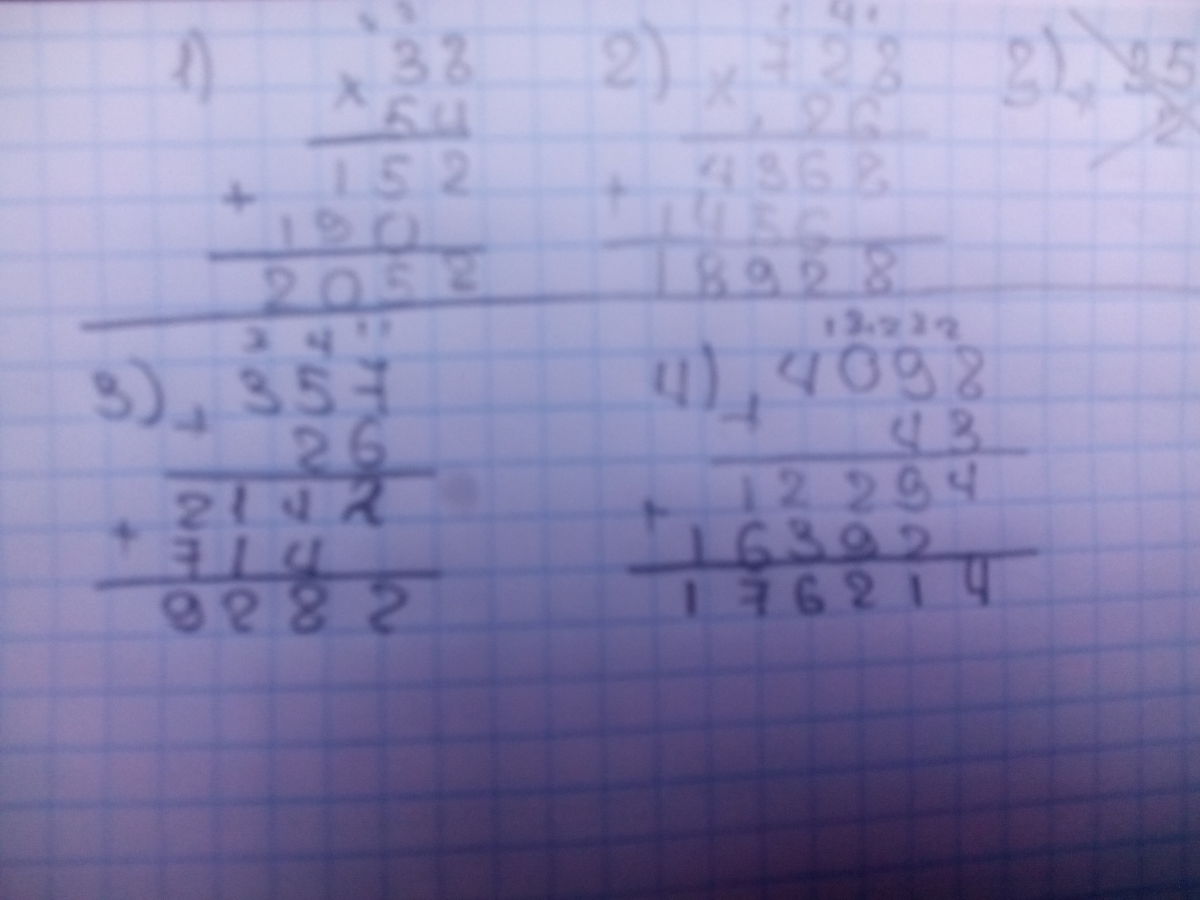 1)
38
× 54
+ 152
190
2052
2)
728
× 26
+ 4368
1456
18928
3) × 35
2
3) × 357
26
2142
+ 714
9282
4) × 4098
43
12294
+ 16392
176214